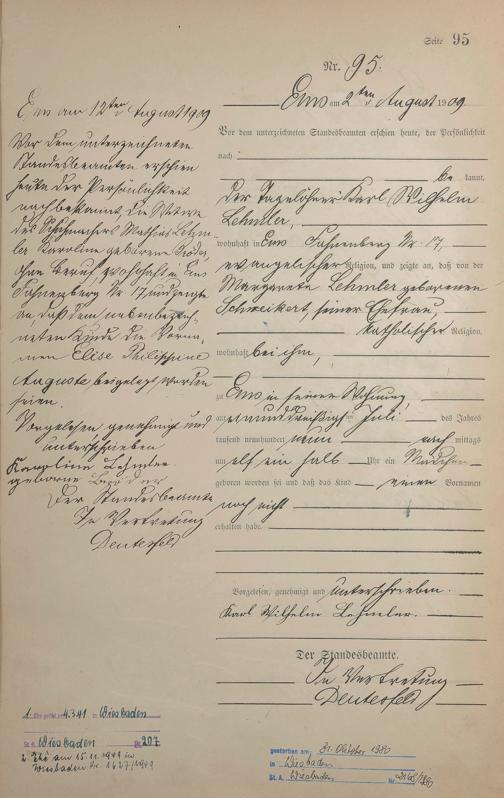 Seite 95
Nr. 95.
Ems am 2ten August 1909
Vor dem unterzeichneten Standesbeamten erschien heute, der Persönlichkeit
nach
be kannt,
der Tagelöhner Karl Wilhelm
Lehmler,
wohnhaft in Ems Fahnenberg Nr. 17,
evangelischer Religion, und zeigte an, daß von der
Margarete Lehmler geborenen
Schweikert, seiner Ehefrau,
katholischer Religion,
wohnhaft bei ihm,
zu Ems in seiner Wohnung,
am einunddreißigsten Juli des Jahres
tausend neunhundert neun nachmittags
um elf ein halb Uhr ein Mädchen
geboren worden sei und daß das Kind einen Vornamen
noch nicht
erhalten habe.
Vorgelesen, genehmigt und unterschrieben.
Karl Wilhelm Lehmler.
Der Standesbeamte.
In Vertretung
Deuterfeld
Ems am 12ten August 1909
Vor dem unterzeichneten
Standesbeamten erschien
heute der Persönlichkeit
nach bekannt, die Witwe
des Schuhmachers Mathias Lehm-
ler Karoline geborene
ohne Beruf, wohnhaft in Ems
Fahnenberg Nr 17 und zeigte
an, daß dem nebenbezeich-
neten Kinde die Vorna-
men Elise Philippine
Auguste beigelegt worden
seien.
Vorgelesen genehmigt und
unterschrieben
Karoline Lehmler
geborene
Der Standesbeamte
In Vertretung
Deuterfeld
1. Ehe geschl. am 4.3.41 in Wiesbaden
St. A. Wiesbaden Nr. 207
2. Ehe am 15.11.1949 in
Wiesbaden Nr. 1627/1949
gestorben am: 31. Oktober 1980
in Wiesbaden
St. A. Wiesbaden Nr. /1980